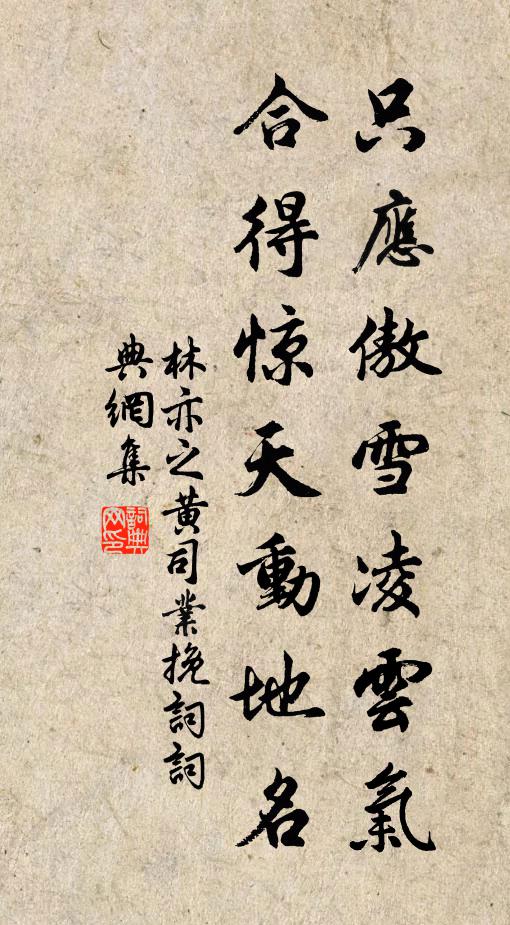 只應傲雪凌雲氣
合得惊天動地名
林亦之黄司業挽詞詞
典網集
詞典网印